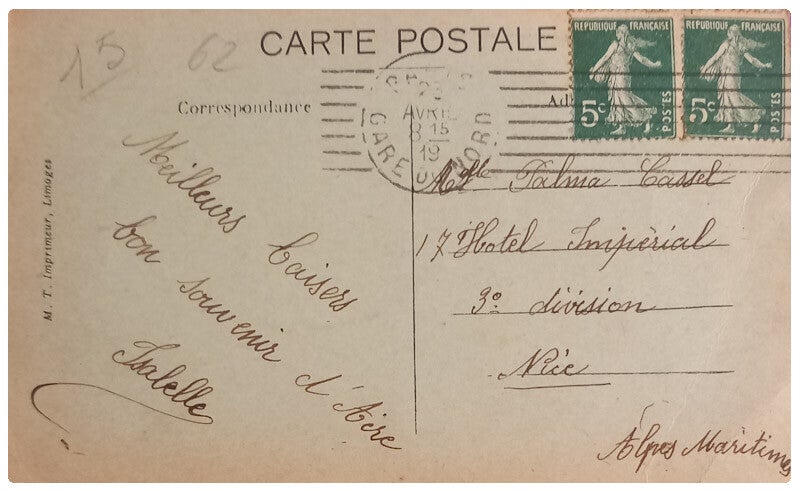 15
62
CARTE POSTALE
REPUBLIQUE FRANÇAISE
5c
POSTES
REPUBLIQUE FRANÇAISE
5c
POSTES
AVRIL
8 15
19
GARE
NORD
Correspondance
Meilleurs baisers
bon souvenir d'Aire
Isabelle
Melle Palma Cassel
17 Hotel Impèrial
3º division
Nice
Alpes Maritimes
M. T. Imprimeur, Limoges